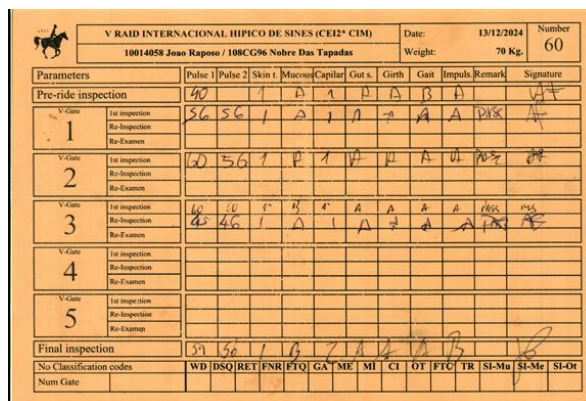 V RAID INTERNACIONAL HIPICO DE SINES (CEI2* CIM) Date: 13/12/2024 Number
10014058 Joao Raposo / 108CG96 Nobre Das Tapadas Weight: 70 Kg. 60
Parameters Pulse 1 Pulse 2 Skin t. Mucous Capilar Gut s. Girth Gait Impuls. Remark Signature
Pre-ride inspection 40 1 A 1 A A B A
V-Gate 1st inspection 56 56 1 A 1 A A A pass
1 Re-Inspection
Re-Examen
V-Gate 1st inspection 60 56 1 1 A A A
2 Re-Inspection
Re-Examen
V-Gate 1st inspection 60 60 1 B 1 A A A A pass
3 Re-Inspection 46 1 A 1 A A
Re-Examen
V-Gate 1st inspection
4 Re-Inspection
Re-Examen
V-Gate 1st inspection
5 Re-Inspection
Re-Examen
Final inspection 56 1 B 2 A A A B
No Classification codes WD DSQ RET FNR FTQ GA ME MI CI OT FTC TR SI-Mu SI-Me SI-Ot
Num Gate